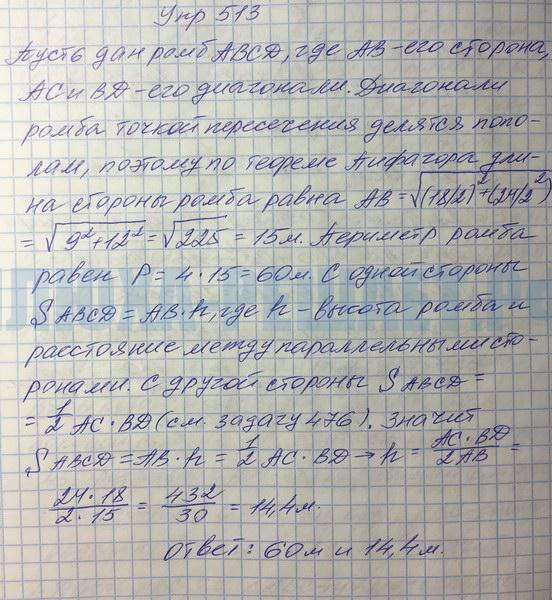 Упр 513
Пусть дан ромб ABCD, где AB - его сторона,
AC и BD - его диагонали. Диагонали
ромба точкой пересечения делятся попо-
лам, поэтому по теореме Пифагора дли-
на стороны ромба равна AB = √(18/2)²+(24/2)²
= √9²+12² = √225 = 15м. Периметр ромба
равен P = 4·15 = 60м. С одной стороны
S ABCD = AB·h, где h - высота ромба и
расстояние между параллельными сто-
ронами. С другой стороны S ABCD =
= 1/2 AC·BD (см. задачу 476). Значит
S ABCD = AB·h = 1/2 AC·BD → h = AC·BD/2AB =
24·18/2·15 = 432/30 = 14,4м.
Ответ: 60м и 14,4м.